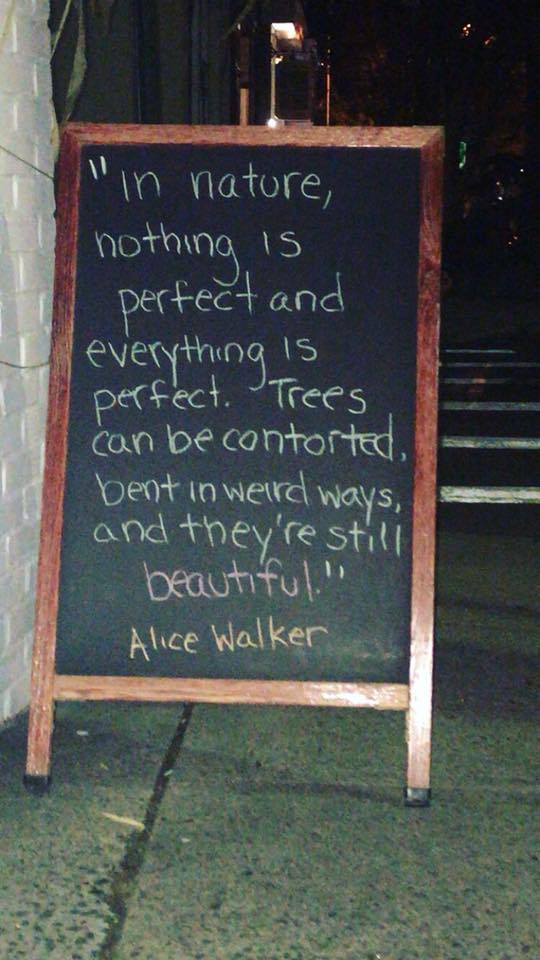 "in nature,
nothing is
perfect and
everything is
perfect. Trees
can be contorted,
bent in weird ways,
and they're still
beautiful."
Alice Walker